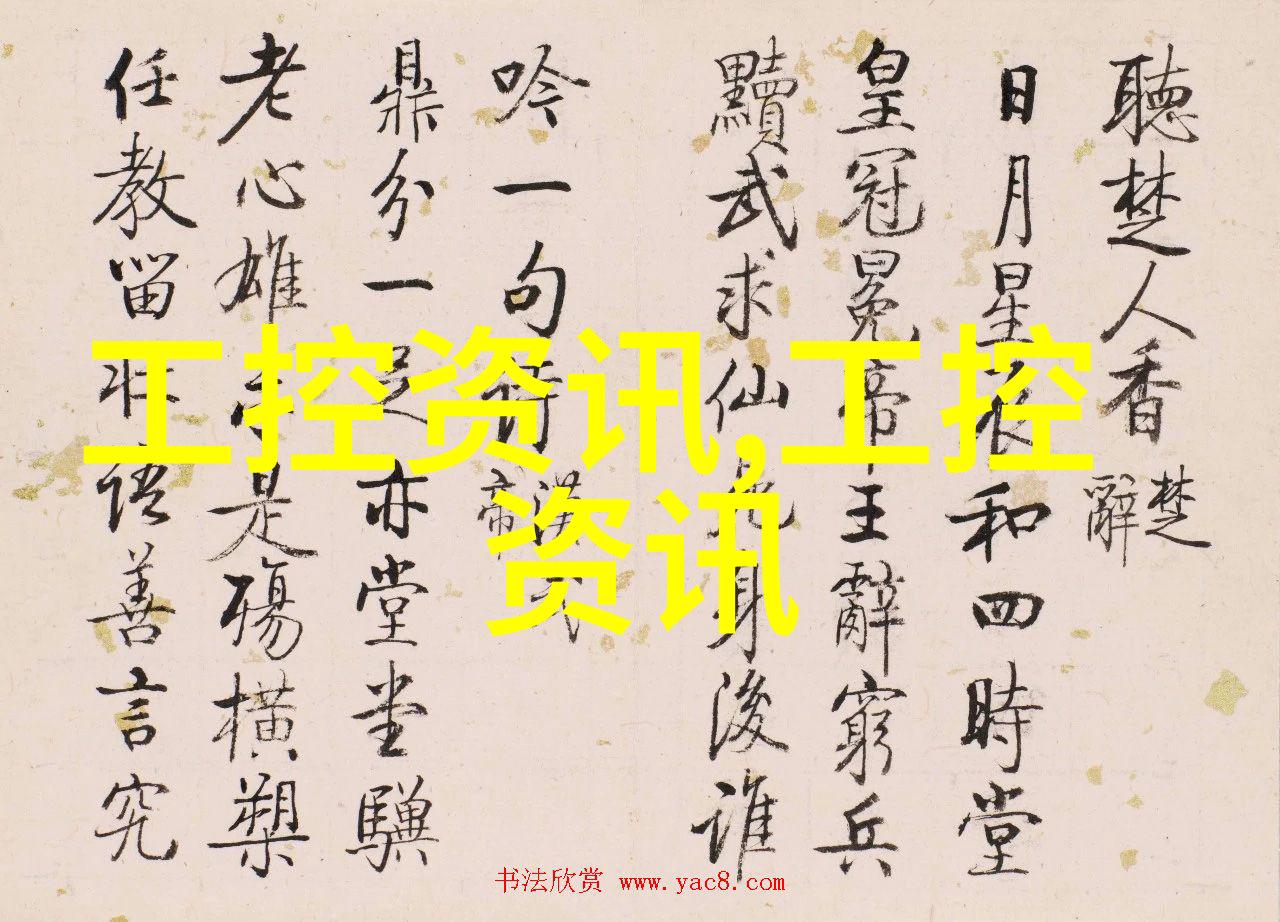 聽楚人香
楚辭
日月星辰和四時堂
皇冠冕帝王辭窮兵
黷武求仙身後誰
吟一句詩
漢武帝
鼎分一足亦堂堂驥
老心雄是殤橫槊
任教留壯語善言究
工控资讯,工控
资讯
书法欣赏 www.yac8.com